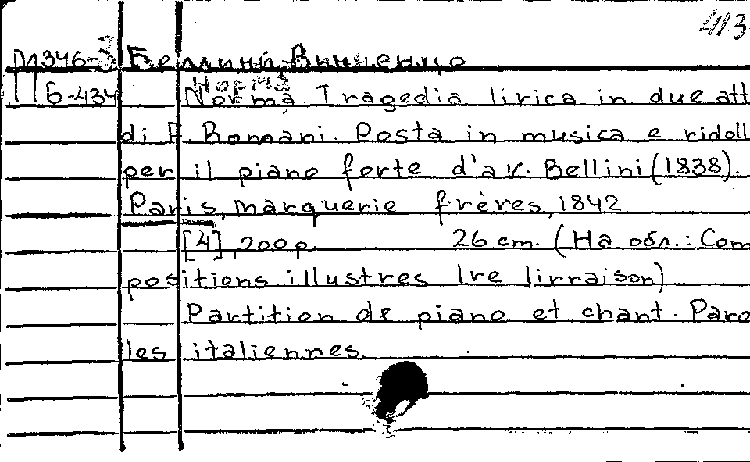 413
М346-3 Беллини Винченцо
Норма
П Б-434 Norma Tragedia lirica in due att
di F. Romani. Posta in musica e ridott
per il piano forte d'av. Bellini (1838).
Paris, Marquerie frères, 1842
[4], 200 p. 26 cm. (На обл.: Com
positions illustres 1re livraison)
Partition de piano et chant. Paro
les italiennes.